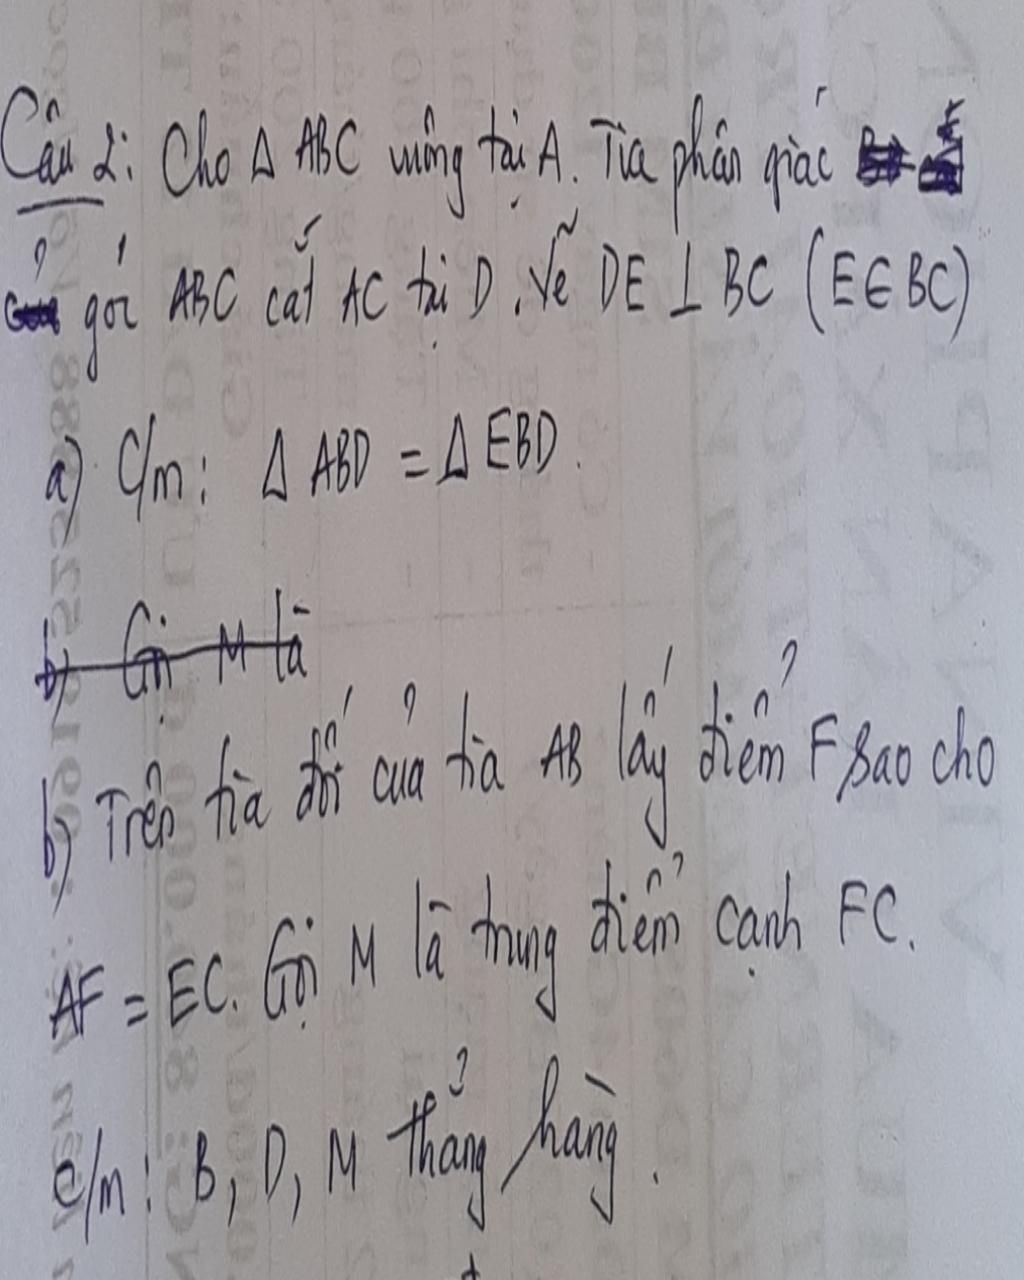 Câu 2: Cho Δ ABC vuông tại A. Tia phân giác
góc ABC cắt AC tại D. Vẽ DE ⊥ BC (E ∈ BC)
a) C/m: Δ ABD = Δ EBD.
b) Gọi M là
b) Trên tia đối của tia AB lấy điểm F sao cho
AF = EC. Gọi M là trung điểm cạnh FC.
c/m: B, D, M thẳng hàng.